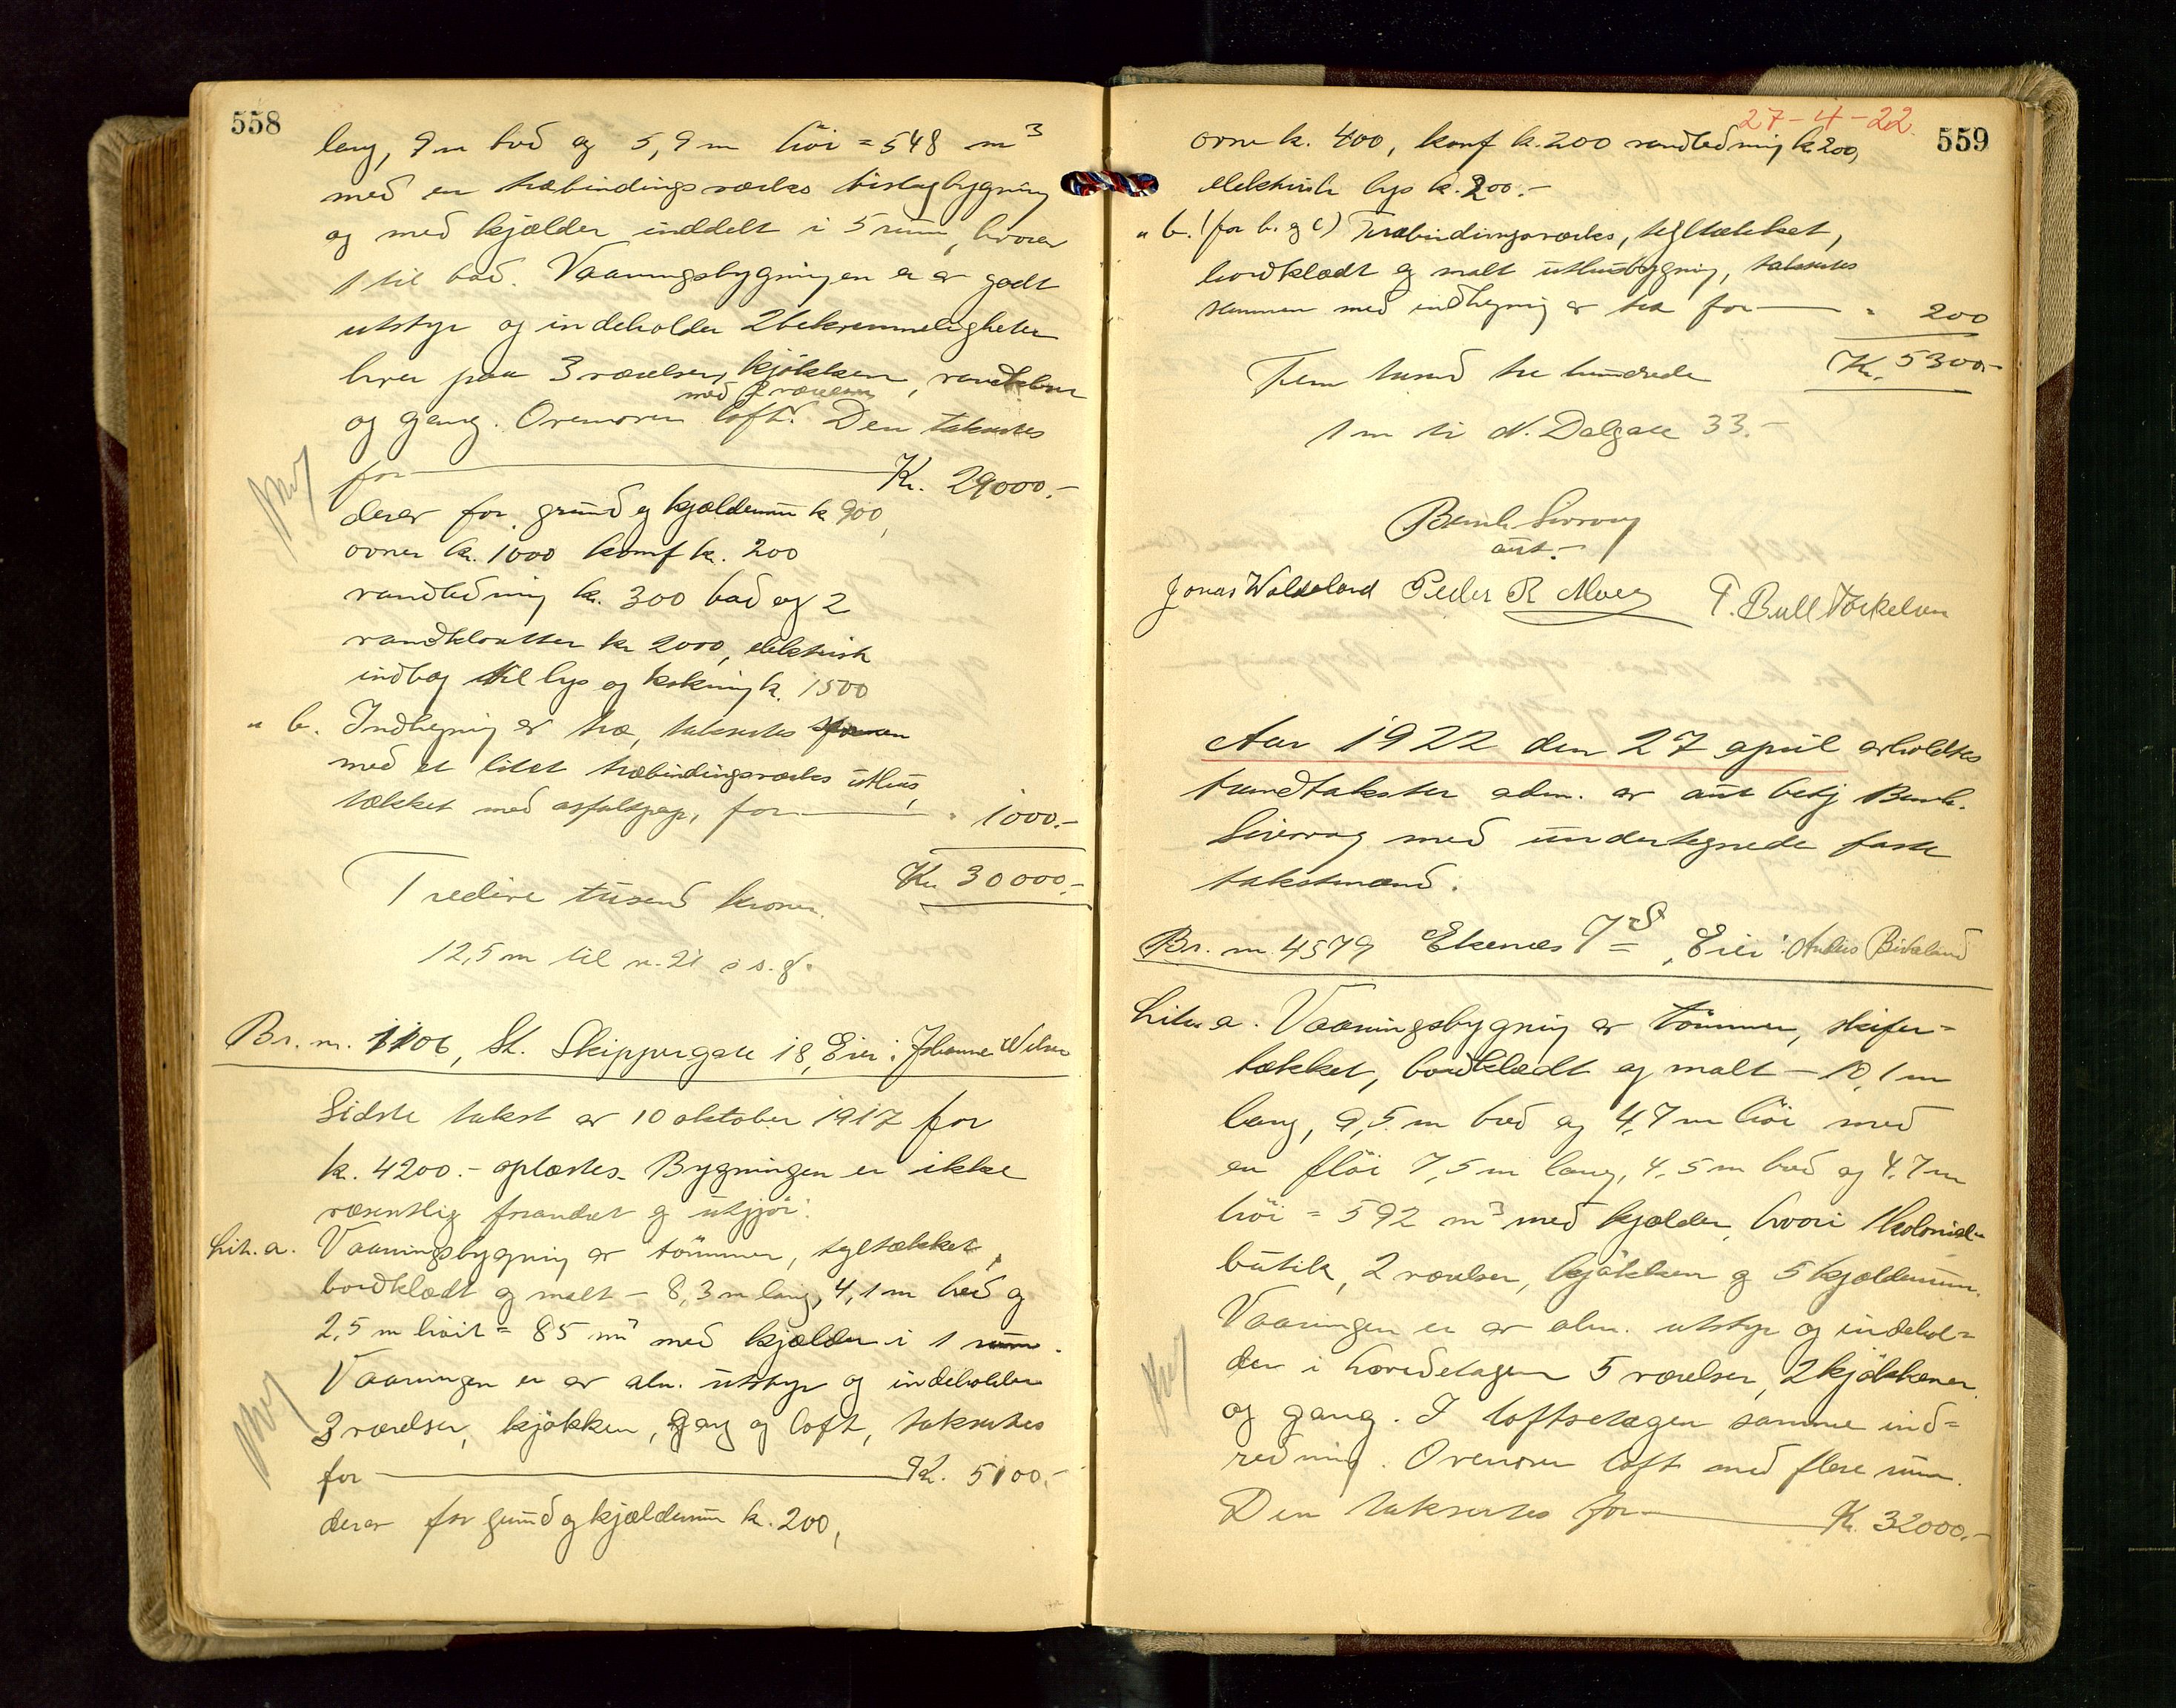 558
lang, 9 m bred og 5,9 m høi = 548 m³
med en træbindingsverks bislagbygning
og med kjælder inddelt i 5 rum, hvorav
1 til bad. Vaaningsbygningen er av godt
utstyr og indeholder 2 bekvemmeligheter
hver paa 3 værelser, kjøkken, vandklosett
og gang. Ovenover loft med 2 værelser. Den takseres
for Kr. 29000.-
derav for grund og kjælderrum kr 900,
ovner kr. 1000 komf kr. 200
vandledning kr. 300 bad og 2
vandklosetter kr 2000, elektrisk
indlag til lys og kokning kr. 1500
" b. Indhegning av træ, takseres sammen
med et litet træbindingsverks uthus,
tækket med asfaltpap, for " 1000.-
Kr. 30000.-
Tredive tusend kroner.
12,5 m til n. 21 s. s. g.
Br. nr. 1106, St. Skippergate 18, Eier: Johanne Wilsen
Sidste takst av 10 oktober 1917 for
kr. 4200.- oplæstes. Bygningen er ikke
væsentlig forandret og utgjør:
Lit. a. Vaaningsbygning av tømmer, tegltækket,
bordklædt og malt - 8,3 m lang, 4,1 m bred og
2,5 m høit = 85 m³ med kjælder i 1 rum.
Vaaningen er av alm. utstyr og indeholder
3 værelser, kjøkken, gang og loft, takseres
for Kr. 5100.-
derav for grund og kjælderrum kr. 200,
27-4-22.
559
ovne kr. 400, komf kr. 200 vandledning kr 200,
elektrisk lys kr. 200.-
" b. (for b. og c) Træbindingsverks, tegltækket,
bordklædt og malt uthusbygning, takseres
sammen med indhegning av træ for " 200
Kr. 5300.-
Fem tusend tre hundrede
1 m til N. Dalgate 33.-
Bernh. Sirevaag
aut.-
Jonas Wolseland Peder R Moey T. Bull Torkelsen
Aar 1922 den 27 april avholdtes
brandtakster adm. av aut betj Bernh.
Sirevaag med undertegnede faste
takstmænd.
Br. nr. 4579 Ekenæs 7 S, Eier: Anders Birkeland
Litr. a. Vaaningsbygning av tømmer, skifer-
tækket, bordklædt og malt - 10,1 m
lang, 9,5 m bred og 4,7 m høi med
en fløi 7,5 m lang, 4,5 m bred og 4,7 m
høi = 592 m³ med kjælder, hvori 1 kolonial-
butik, 2 værelser, kjøkken og 5 kjælderrum.
Vaaningen er av alm. utstyr og indehol-
der i hovedetagen 5 værelser, 2 kjøkkener
og gang. I loftsetagen samme ind-
redning. Ovenover loft med flere rum.
Den takseres for Kr. 32000.-